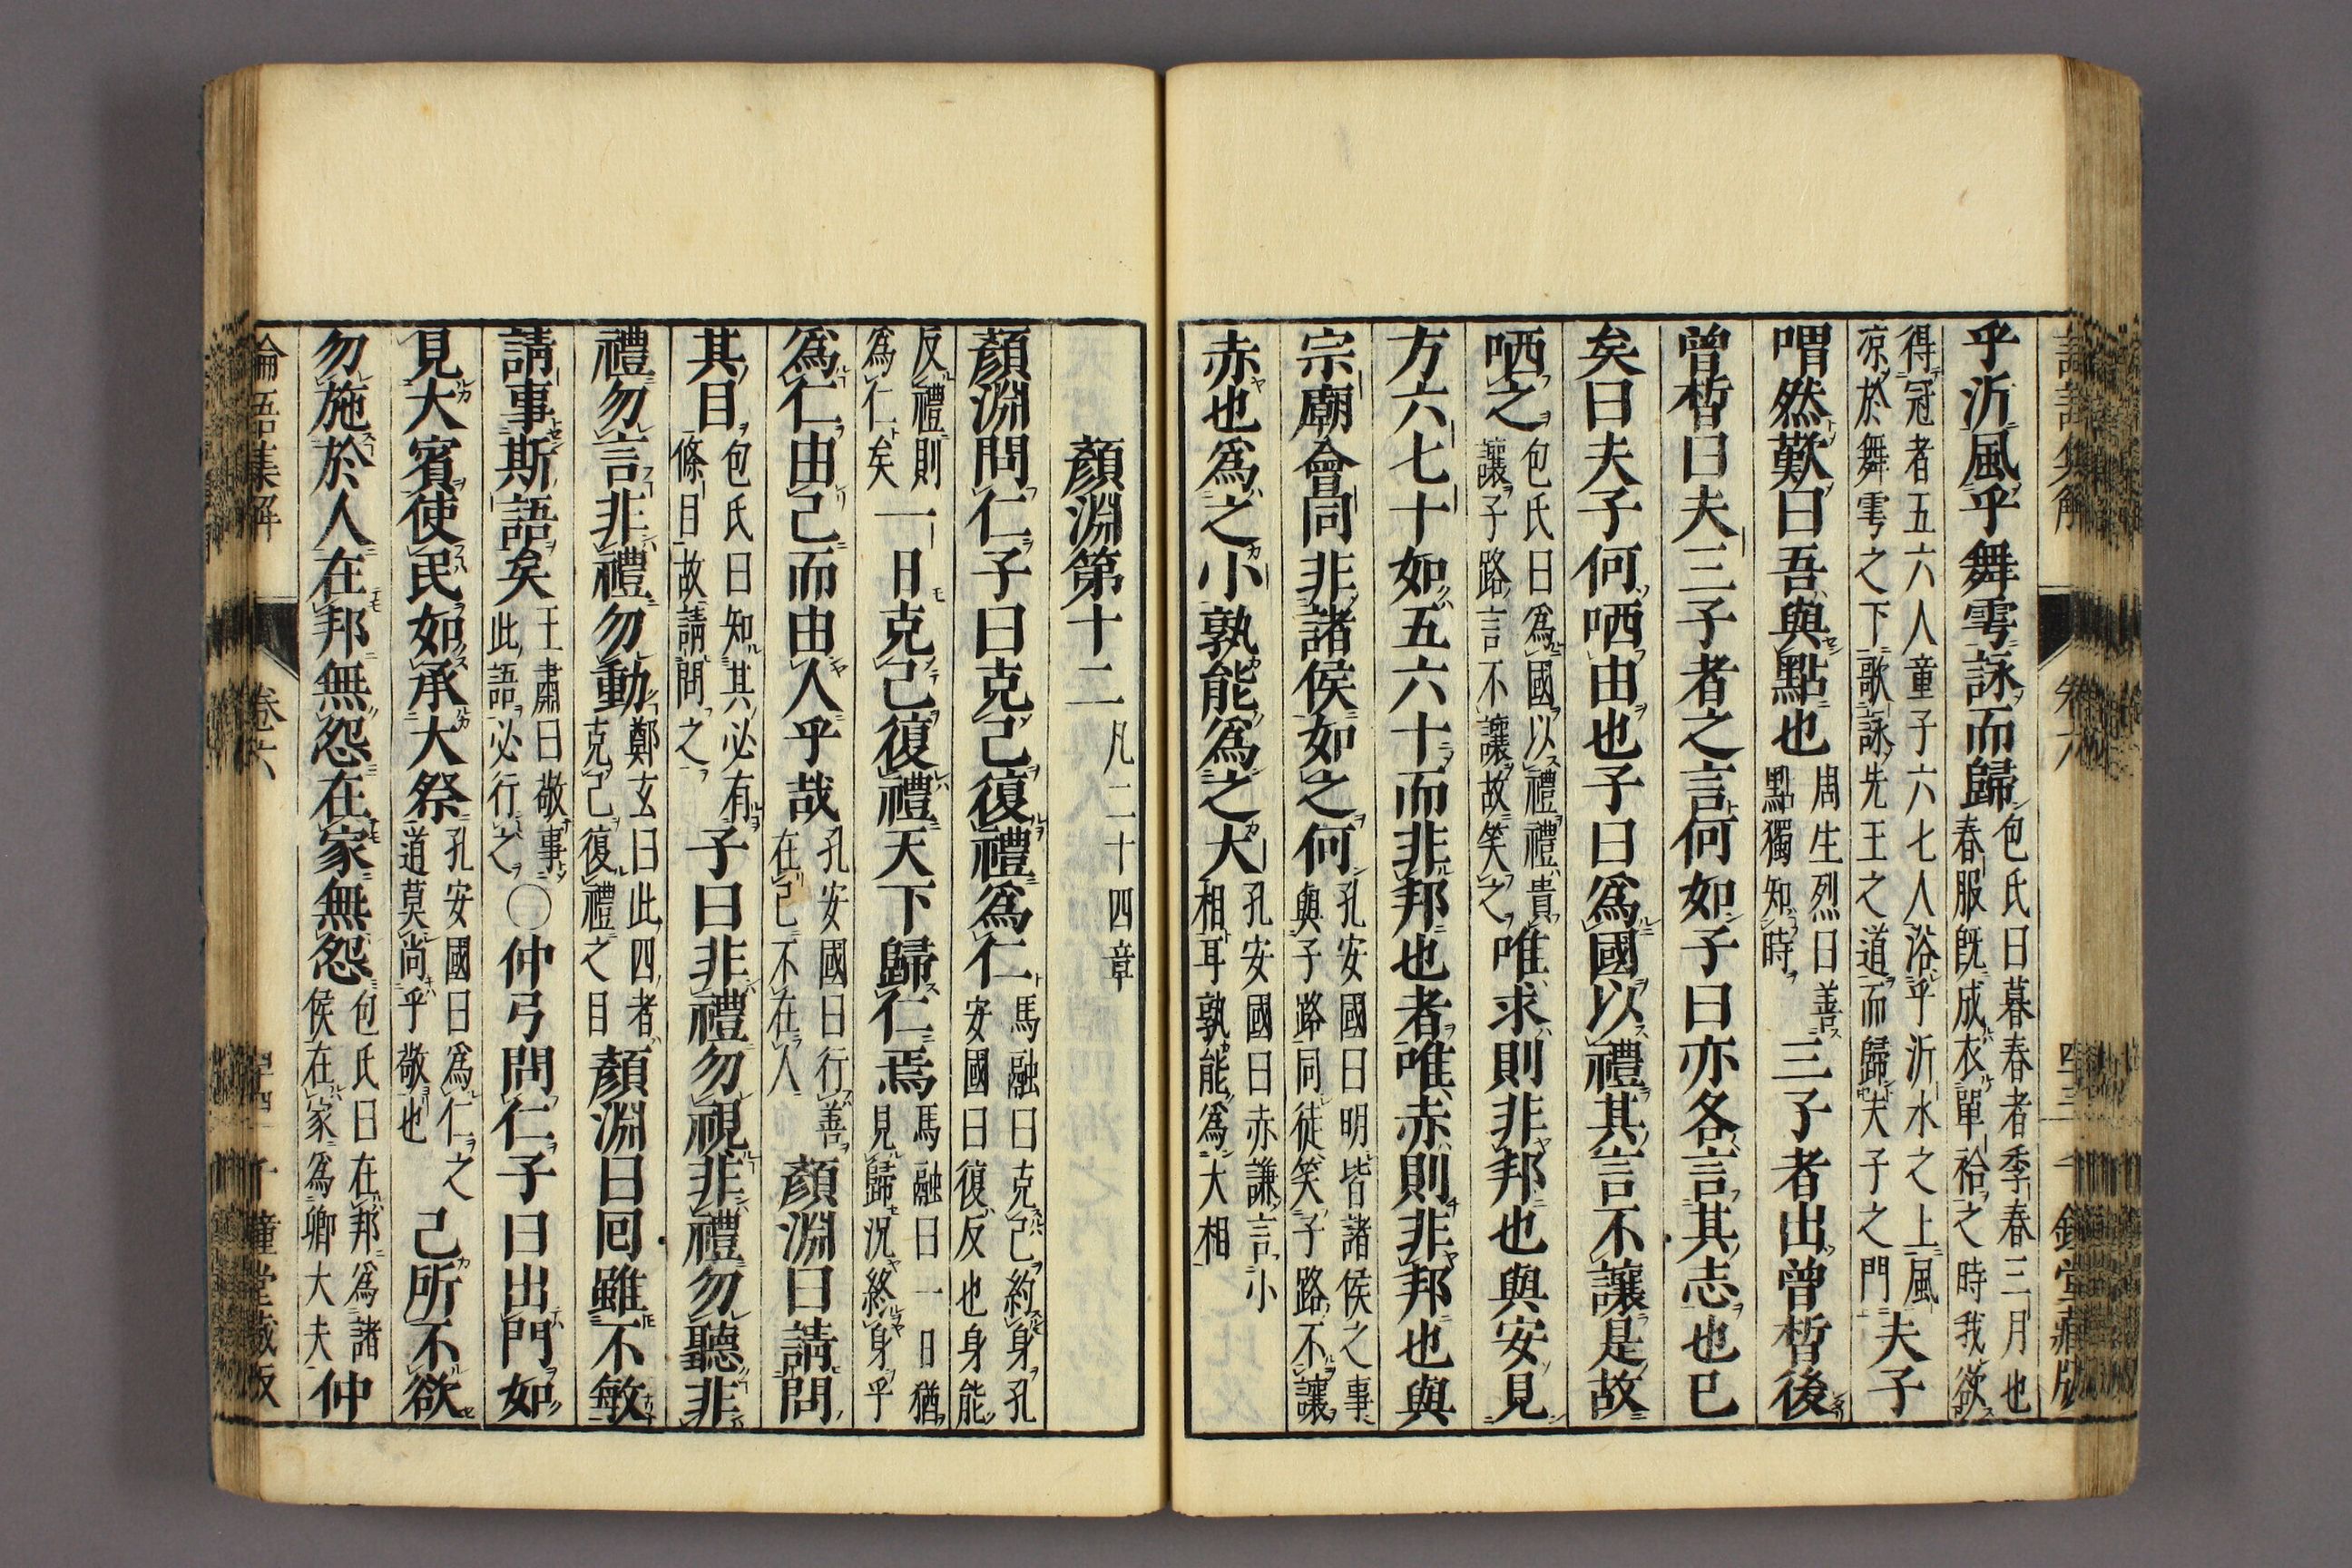 乎沂風乎舞雩詠而歸包氏曰暮春者季春三月也春服旣成衣單袷之時我欲
得冠者五六人童子六七人浴乎沂水之上風凉於舞雩之下歌詠先王之道而歸夫子之門夫子
喟然歎曰吾與點也周生烈曰善點獨知時三子者出曾晳後
曾晳曰夫三子者之言何如子曰亦各言其志也已
矣曰夫子何哂由也子曰爲國以禮其言不讓是故
哂之包氏曰爲國以禮禮貴讓子路言不讓故笑之唯求則非邦也與安見
方六七十如五六十而非邦也者唯赤則非邦也與
宗廟會同非諸侯如之何孔安國曰明皆諸侯之事與子路同徒笑子路不讓
赤也爲之小孰能爲之大孔安國曰赤謙言小相耳孰能爲大相
顏淵第十二凡二十四章
顏淵問仁子曰克己復禮爲仁馬融曰克己約身孔安國曰復反也身能
反禮則爲仁矣一日克己復禮天下歸仁焉馬融曰一日猶見歸況終身乎
爲仁由己而由人乎哉孔安國曰行善在己不在人顏淵曰請問
其目包氏曰知其必有條目故請問之子曰非禮勿視非禮勿聽非
禮勿言非禮勿動鄭玄曰此四者克己復禮之目顏淵曰回雖不敏
請事斯語矣王肅曰敬事此語必行之○仲弓問仁子曰出門如
見大賓使民如承大祭孔安國曰爲仁之道莫尚乎敬也己所不欲
勿施於人在邦無怨在家無怨包氏曰在邦爲諸侯在家爲卿大夫仲
論語集解 卷六